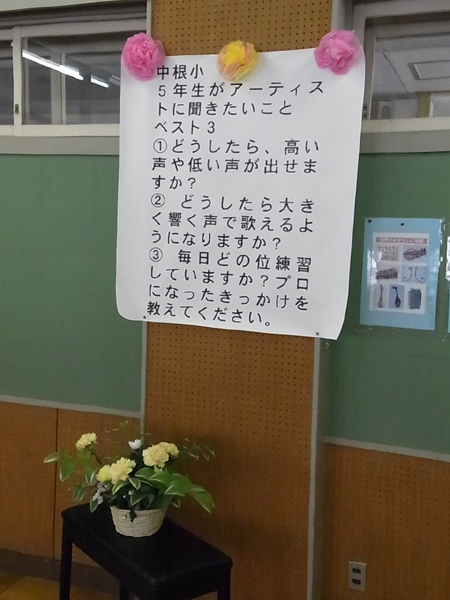 中根小
５年生がアーティス
トに聞きたいこと
ベスト３
①どうしたら、高い
声や低い声が出せま
すか？
② どうしたら大き
く響く声で歌えるよ
うになりますか？
③ 毎日どの位練習
していますか？プロ
になったきっかけを
教えてください。